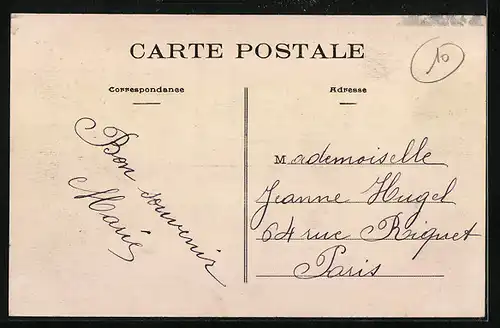 CARTE POSTALE
10
Correspondance
Adresse
Bon souvenir
Marie
Mademoiselle
Jeanne Hugel
64 rue Riquet
Paris